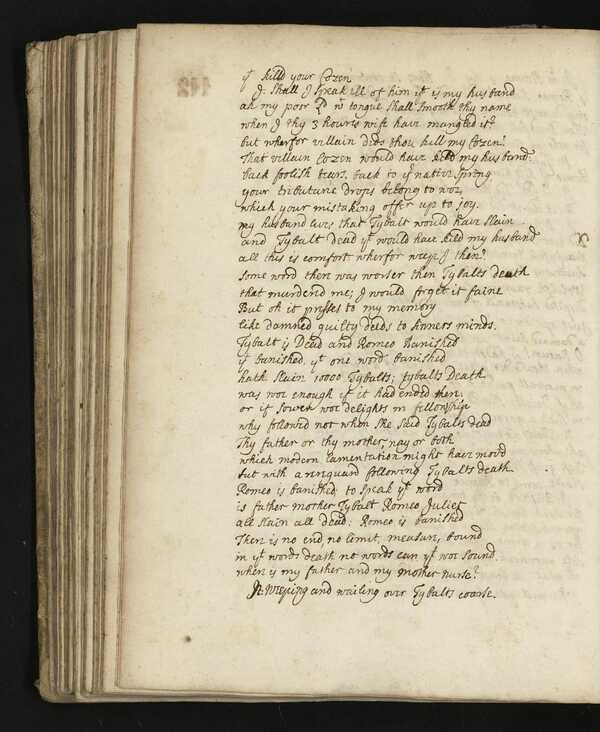 yt killd your Cozen
J. Shall I speak ill of him yt is my husband
ah my poor Ld wt tongue shall smooth thy name
when I thy 3 hours wife have mangled it?
but wherfor villain dids thou kill my Cozen?
That villain Cozen would have killd my husband.
back foolish tears, back to yr native spring
your tributarie drops belong to woe,
which your mistaking offer up to joy.
my husband lives that Tybalt would have slain
and Tybalt Dead yt would have kild my husband
all this is comfort wherfor weep I then?
Some word there was worser then Tybalts death
that murdered me; I would forget it faine
But oh it presses to my memory
like damned guilty deeds to sinners minds.
Tybalt is Dead and Romeo Banished
yt banished, yt one word banished
hath slain 10000 Tybalts; tybalts Death
was woe enough if it had ended ther.
or if sower woe delights in fellowship
why followed not when she said Tybalts dead
Thy father or thy mother, nay or both
which modern lamentation might have movd
but with a rereguard following Tybalts death
Romeo is banished; to speak yt word
is father mother Tybalt Romeo Juliet
all slain all dead; Romeo is banished
There is no end, no limit, measure, bound
in yt words death no words can yt woe sound.
wher is my father and my mother nurse?
N. Weeping and wailing over Tybalts coarse.